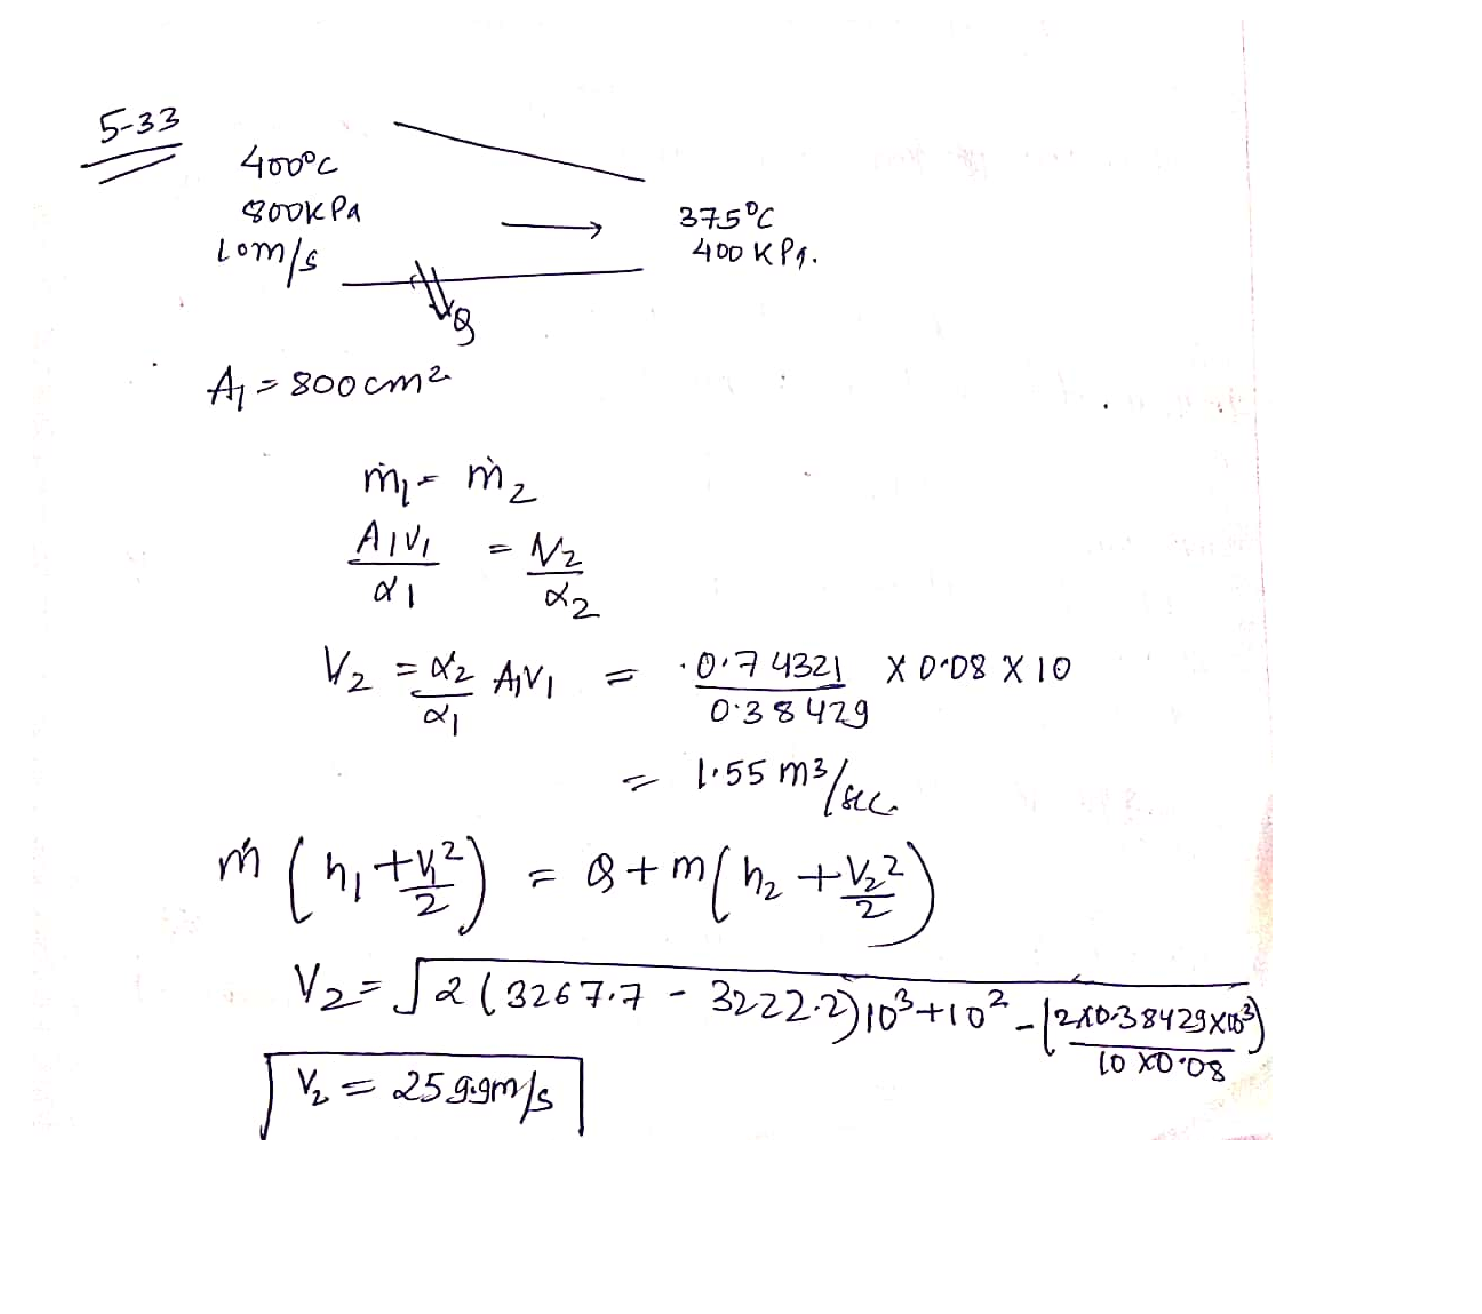 5-33
400°C
800KPa
10m/s
375°C
400 KPa.
Q
A1 = 800 cm²
ṁ1 = ṁ2
A1V1/α1 = V2/α2
V2 = α2/α1 A1V1 = 0.74321/0.38429 X 0.08 X 10
= 1.55 m³/sec.
ṁ (h1 + V1²/2) = Q + m (h2 + V2²/2)
V2 = √2(3267.7 - 3222.2)10³ + 10² - (2x0.38429x10³/10 X0.08)
V2 = 259.9m/s